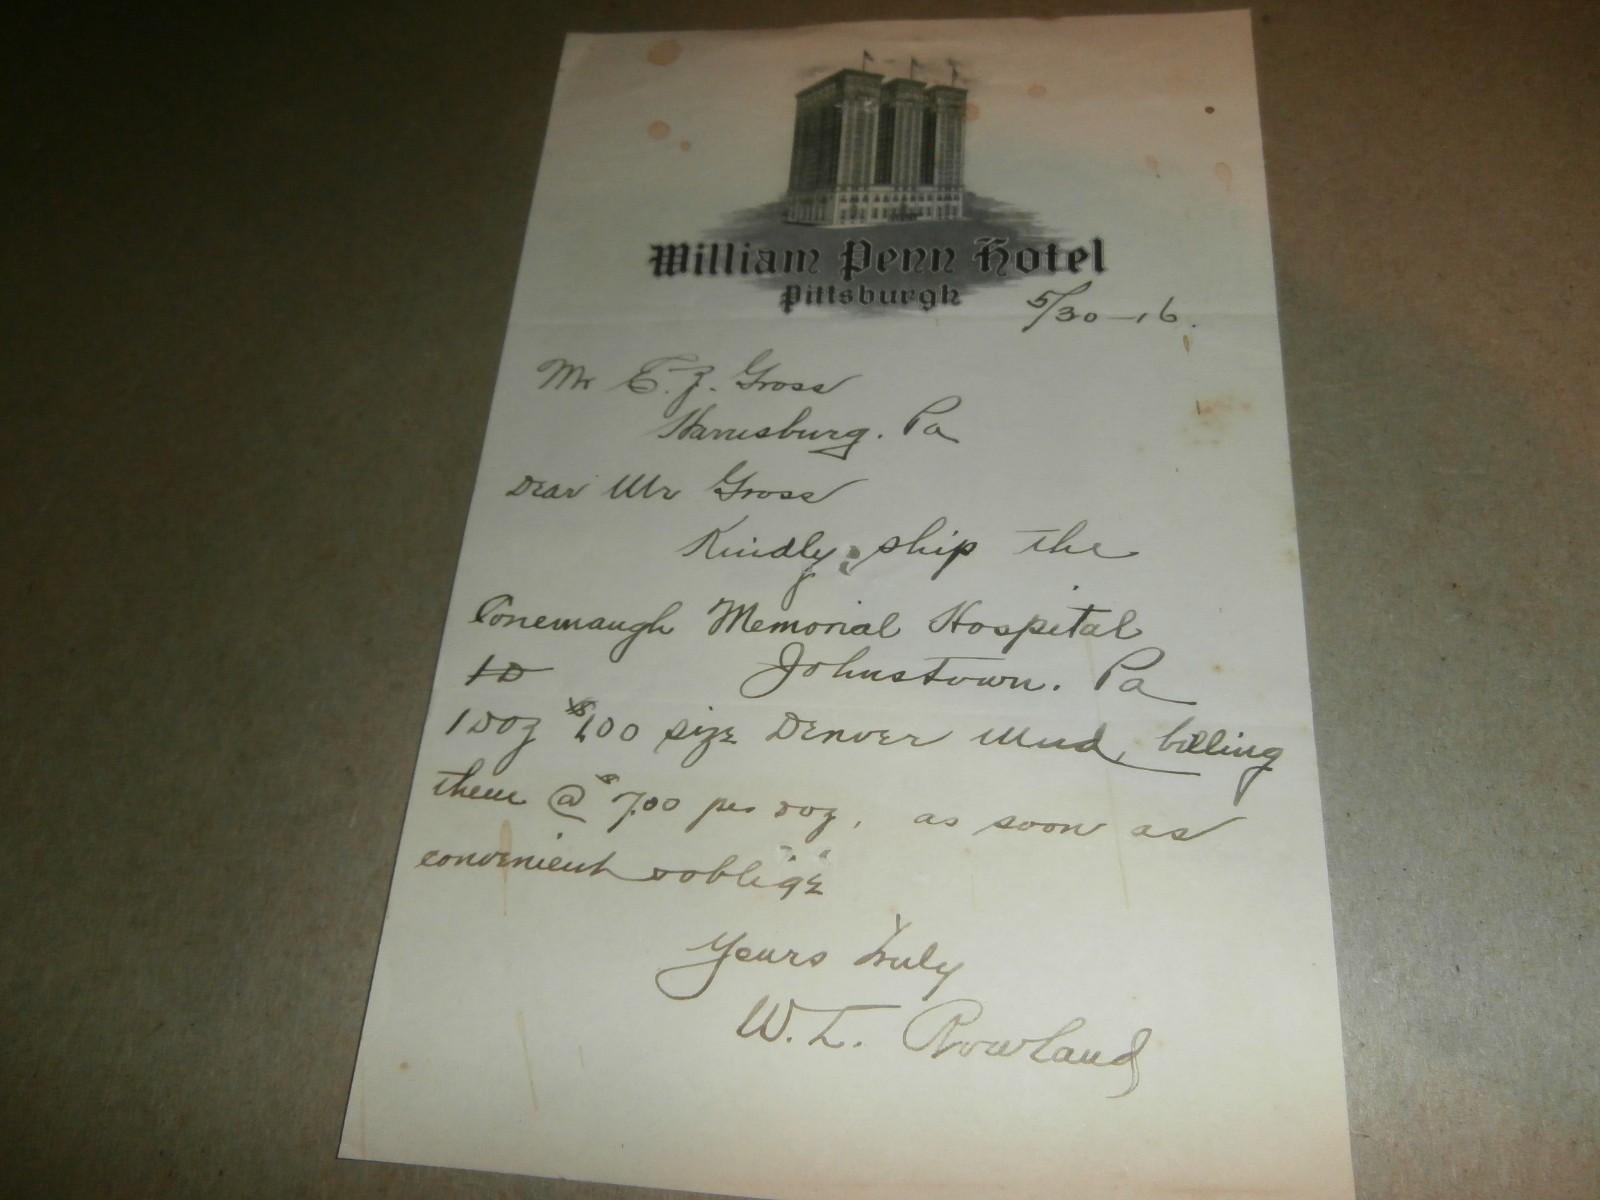 William Penn Hotel
Pittsburgh
5/30-16.
Mr E. Z. Gross
Harrisburg. Pa
Dear Mr Gross
Kindly ship the
Conemaugh Memorial Hospital
Johnstown. Pa
1 Doz $1.00 size Denver Mud, billing
them @ $7.00 per doz, as soon as
convenient & oblige
Yours truly
W. L. Rowland